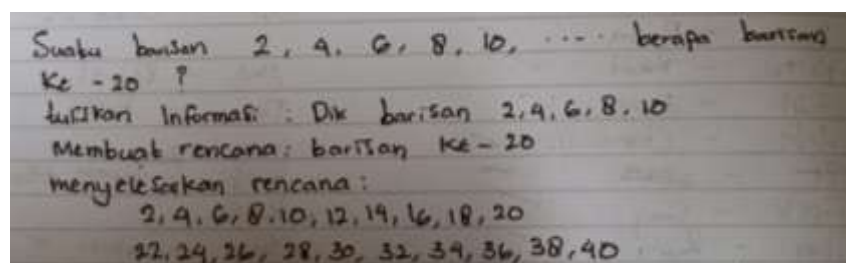 Suatu barisan 2, 4, 6, 8, 10, .... berapa barisan
Ke - 20 ?
tuliskan Informasi : Dik barisan 2, 4, 6, 8, 10
Membuat rencana : barisan Ke - 20
menyelesaikan rencana :
2, 4, 6, 8, 10, 12, 14, 16, 18, 20
22, 24, 26, 28, 30, 32, 34, 36, 38, 40